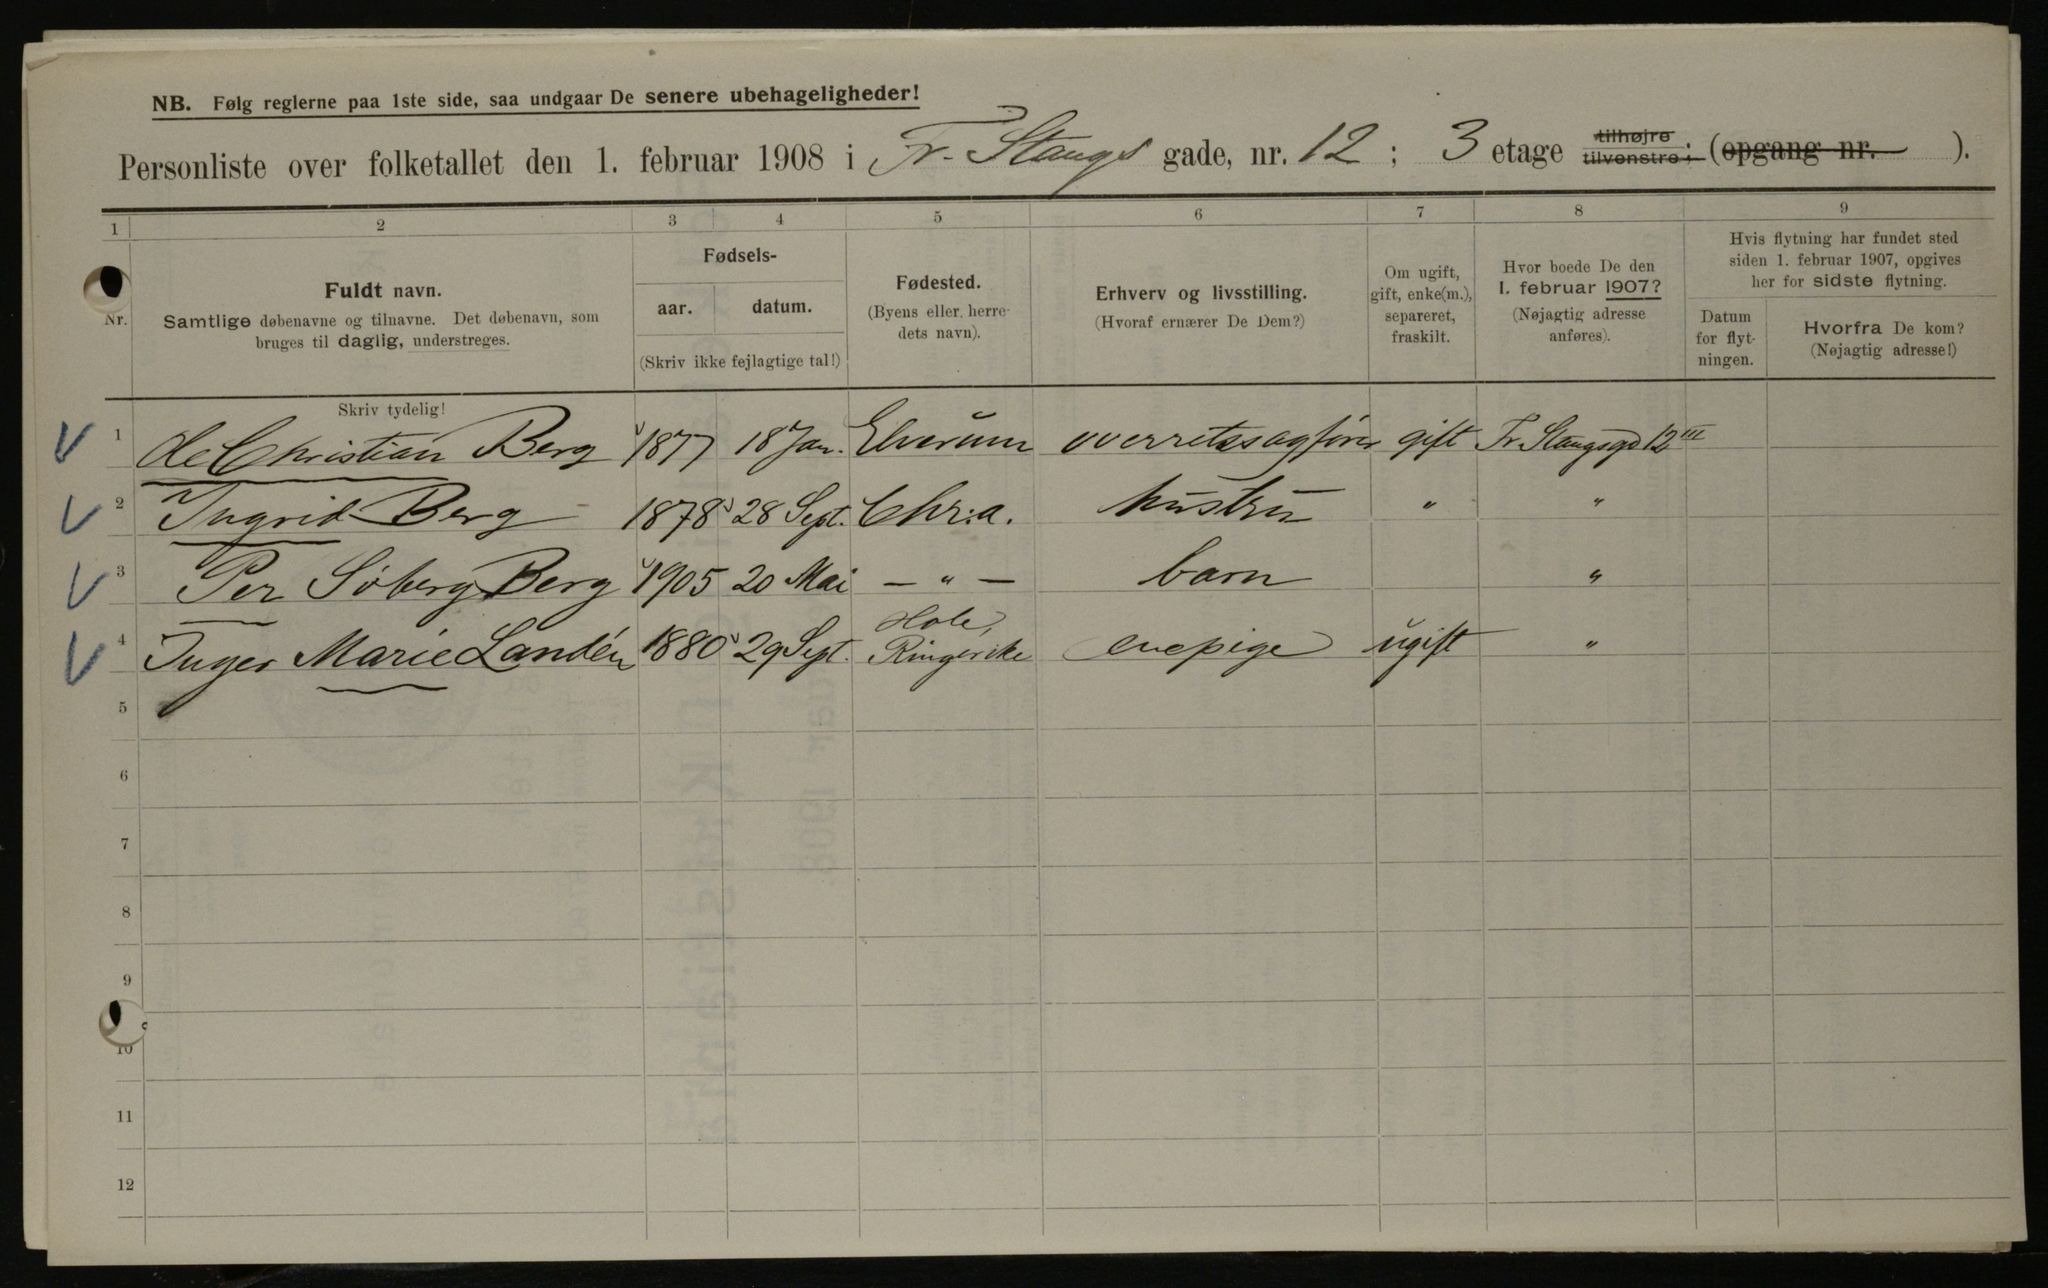 NB. Følg reglerne paa 1ste side, saa undgaar De senere ubehageligheder!
Personliste over folketallet den 1. februar 1908 i Fr. Stangs gade, nr. 12; 3 etage tilhøjre tilvenstre; (opgang nr. ).
1 2 3 4 5 6 7 8 9
Nr.
Fuldt navn.
Samtlige døbenavne og tilnavne. Det døbenavn, som
bruges til daglig, understreges.
Skriv tydelig!
Fødsels-
aar. datum.
(Skriv ikke fejlagtige tal!)
Fødested.
(Byens eller herre-
dets navn).
Erhverv og livsstilling.
(Hvoraf ernærer De Dem?)
Om ugift,
gift, enke(m.),
separeret,
fraskilt.
Hvor boede De den
1. februar 1907?
(Nøjagtig adresse
anføres).
Hvis flytning har fundet sted
siden 1. februar 1907, opgives
her for sidste flytning.
Datum
for flyt-
ningen.
Hvorfra De kom?
(Nøjagtig adresse!)
1 Christian Berg 1877 18 Jan. Elverum overretssagfører gift Fr Stangsgd 12 III
2 Ingrid Berg 1878 28 Sept. Chr:a. hustru " "
3 Per Söberg Berg 1905 20 Mai — " — barn "
4 Inger Marie Landén 1880 29 Sept. Hole, Ringerike enepige ugift "
5
6
7
8
9
10
11
12